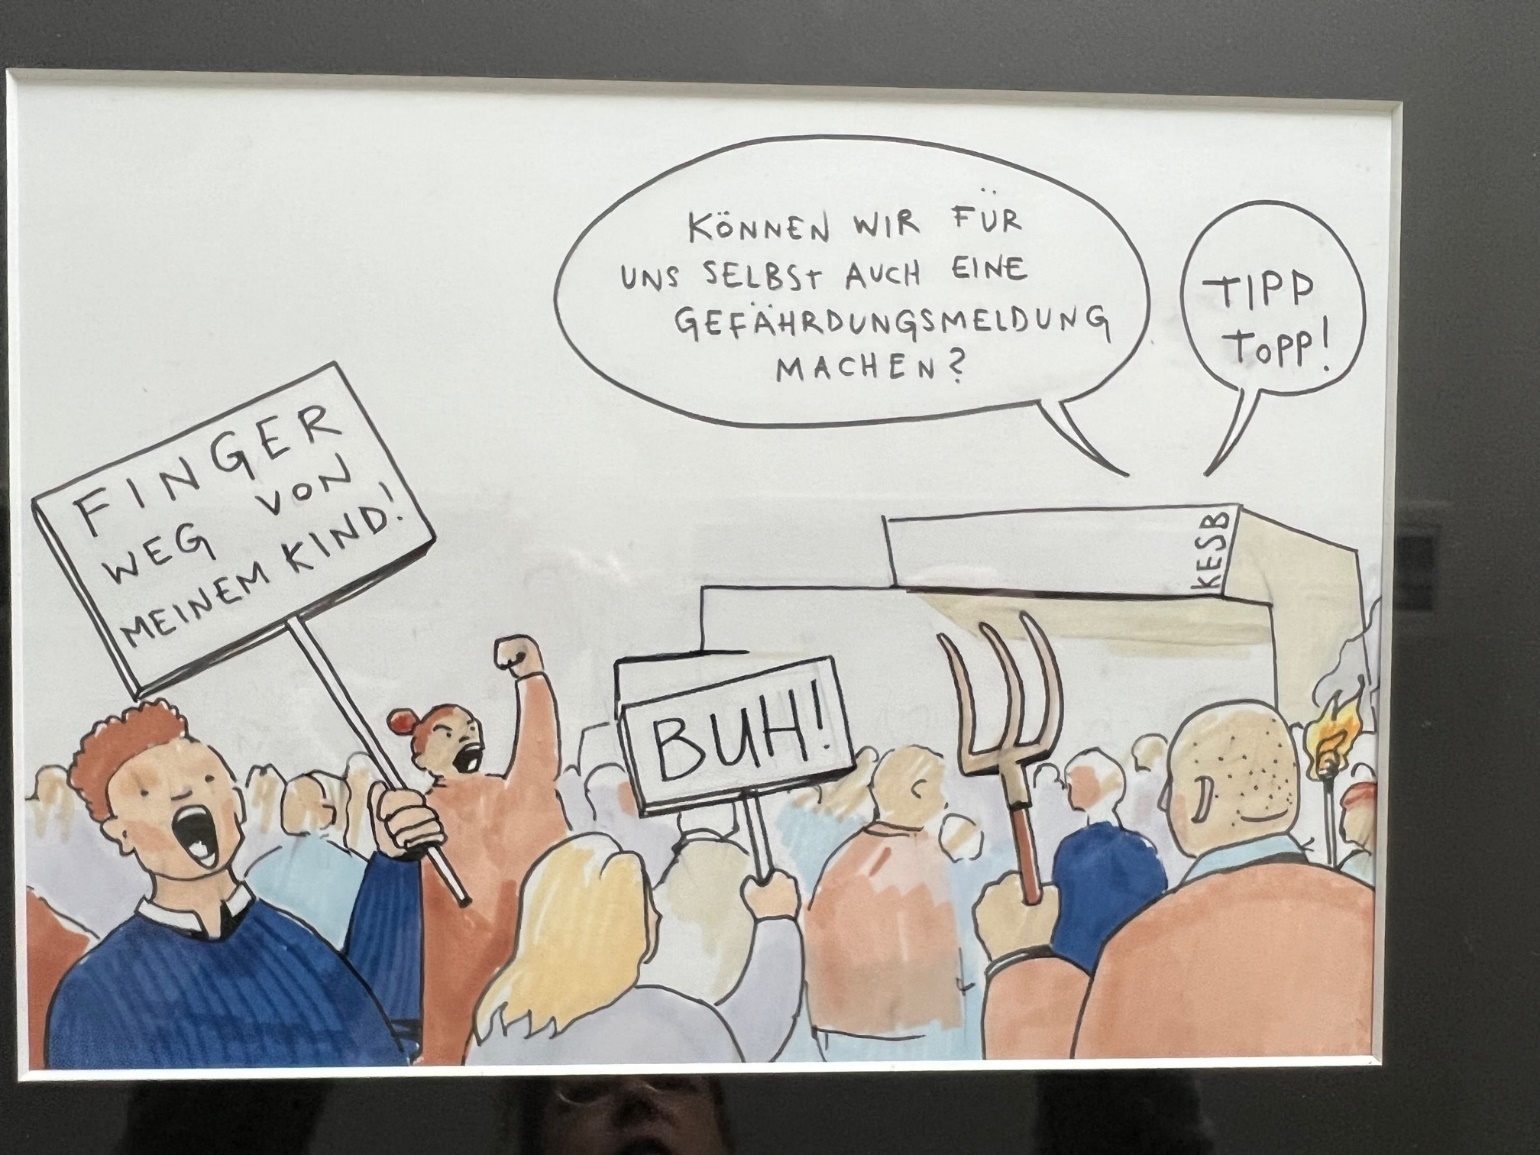 KÖNNEN WIR FÜR
UNS SELBST AUCH EINE
GEFÄHRDUNGSMELDUNG
MACHEN?
TIPP
TOPP!
FINGER
WEG VON
MEINEM KIND!
KESB
BUH!